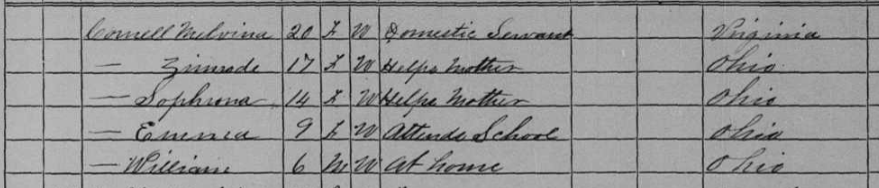 Cornell Melvina 20 F W Domestic Servant Virginia
— Zimrode 17 F W Helps Mother Ohio
— Sophrona 14 F W Helps Mother Ohio
— 9 F W Attends School Ohio
— William 6 M W At home Ohio